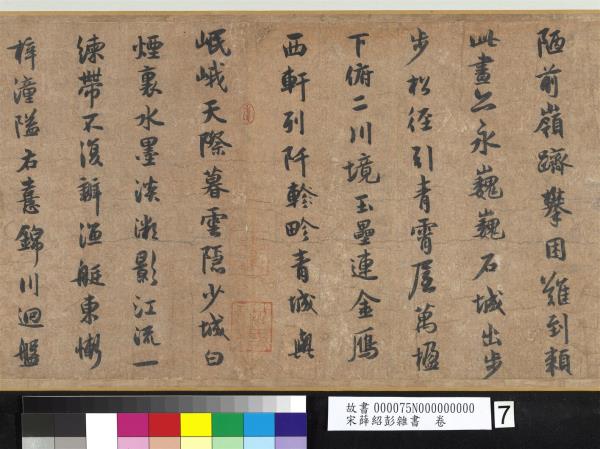 陋前嶺躋攀困難到頼
此畫亦永巍巍石城出步
步松徑引青霄僅萬㩉
下俯二川境玉壘連金鴈
西軒列阡軫畛青城與
岷峨天際暮雲隱少城白
煙裏水墨淡濔影江流一
練帶不復辨漁艇東慚
梓潼隘右憙錦川迴盤
故書 000075N000000000
宋薛紹彭雜書 卷
7